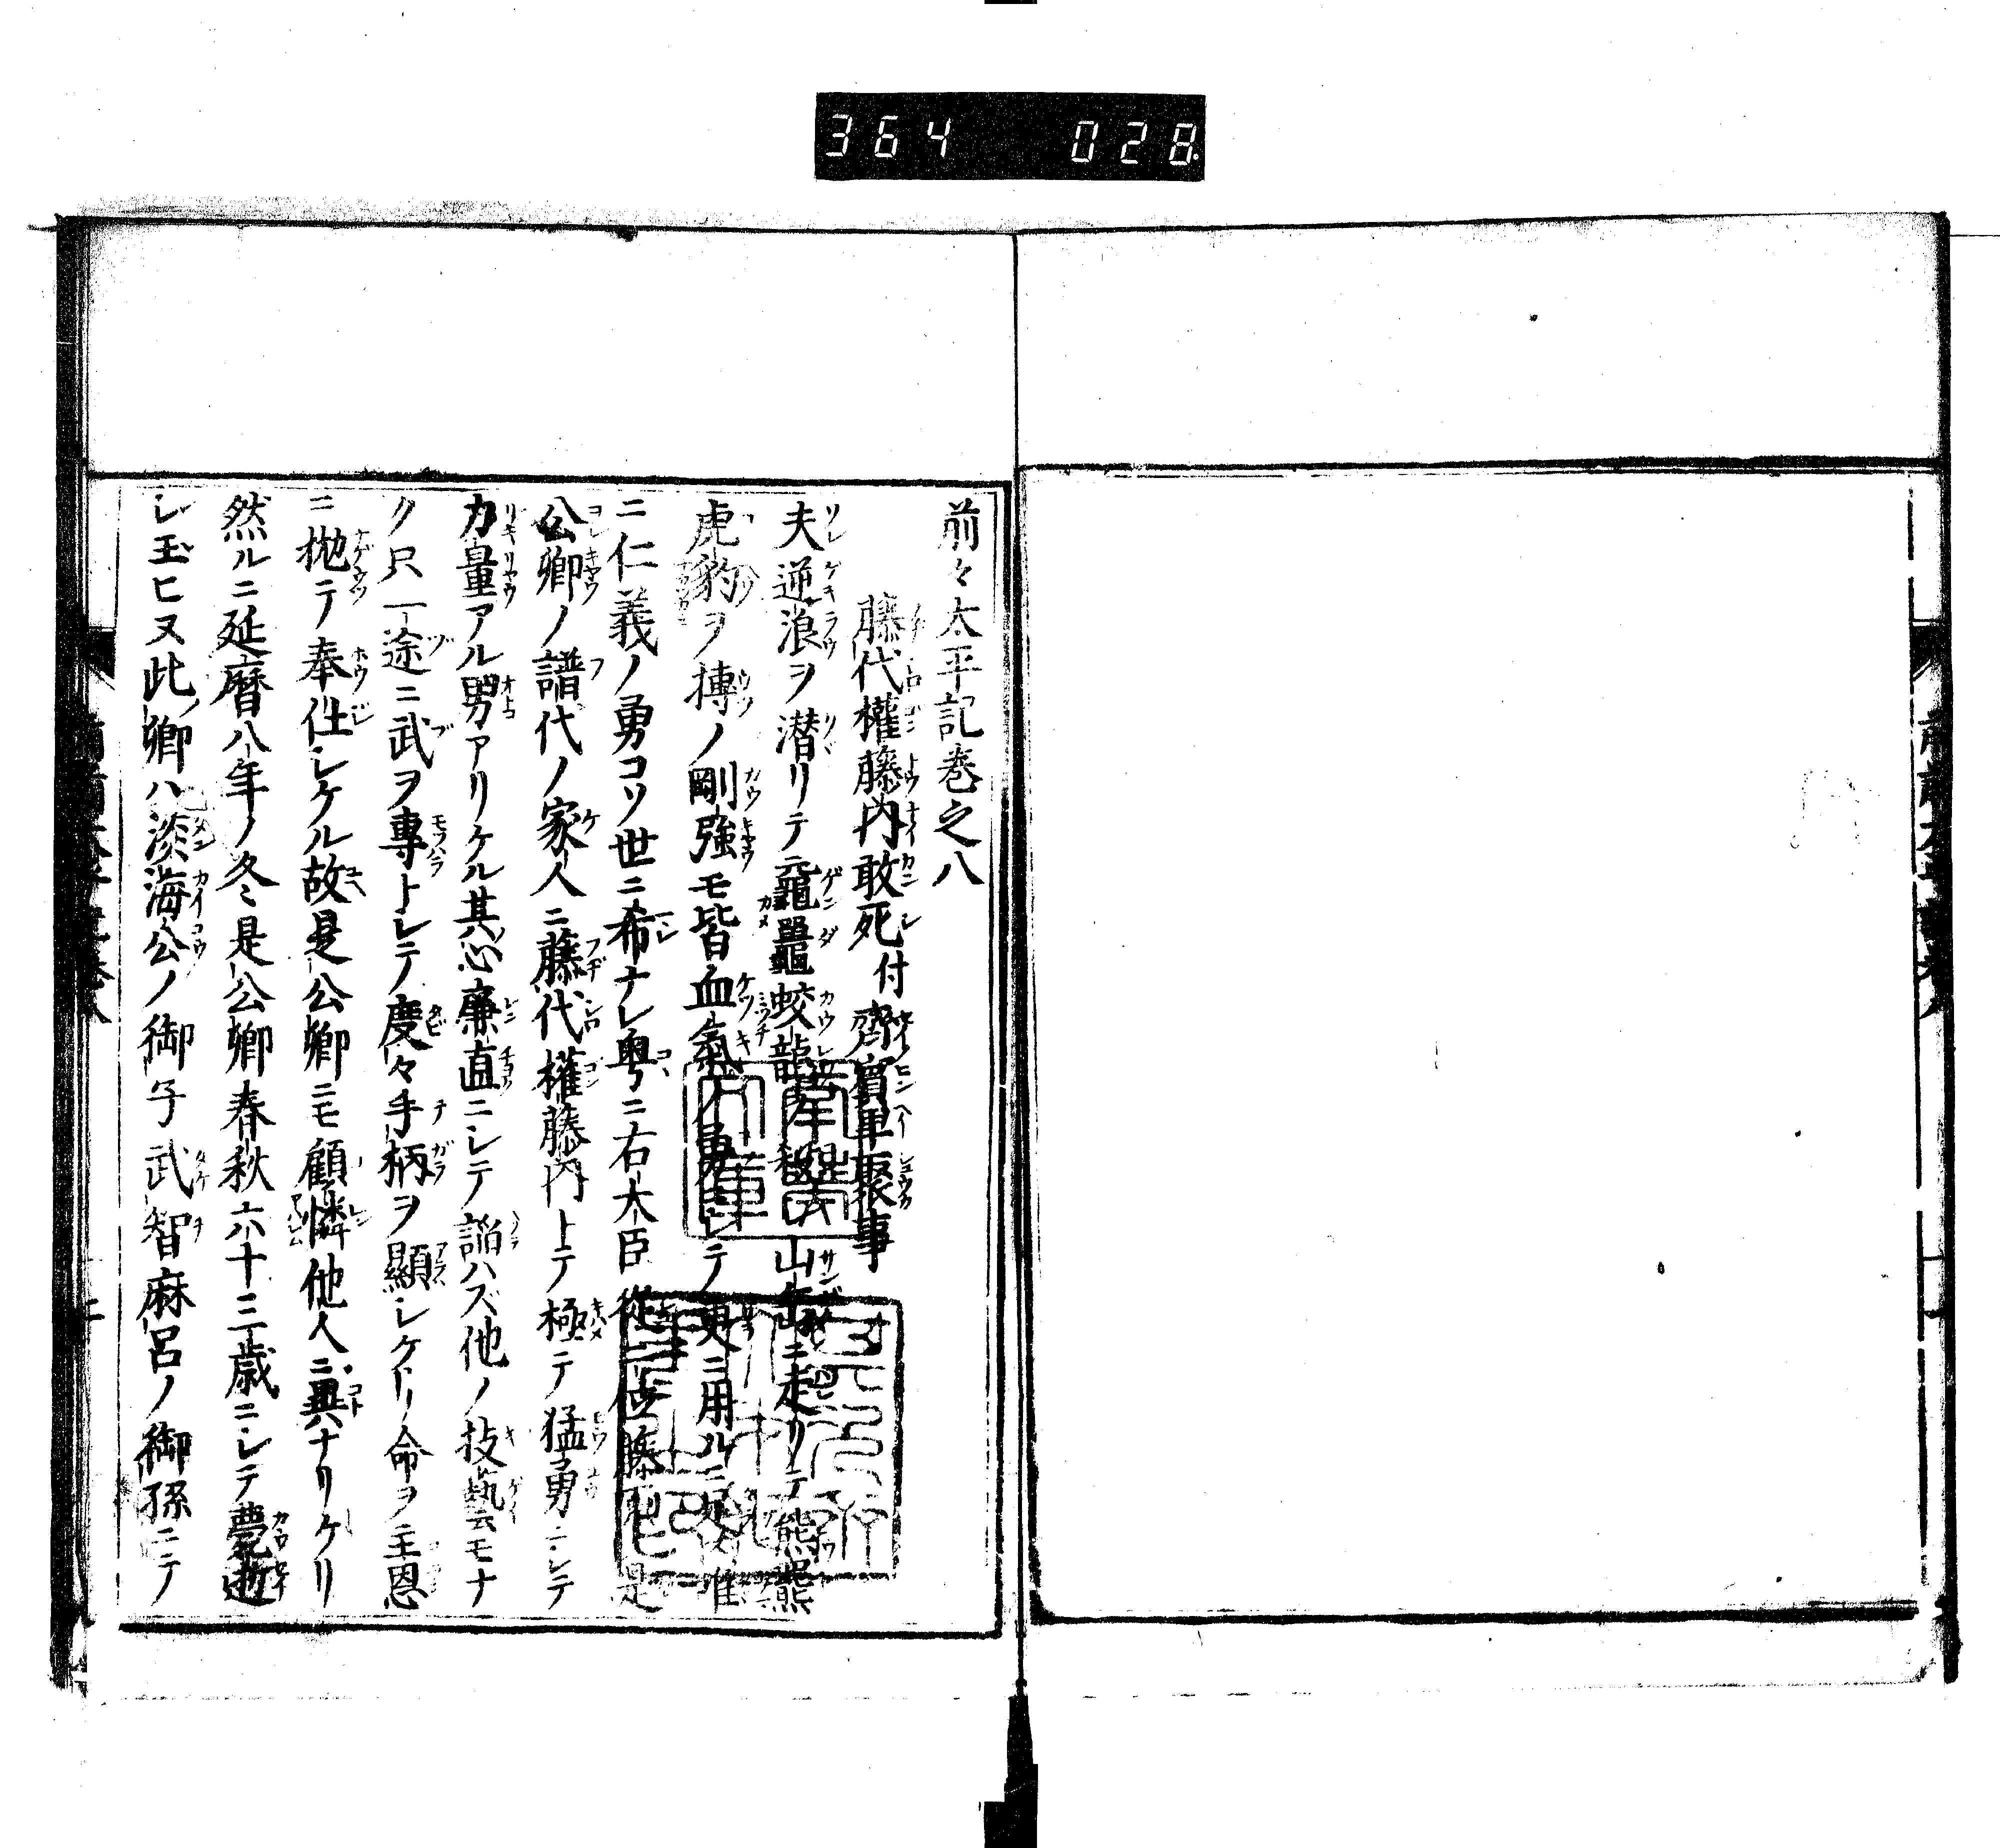 364 028
前々太平記巻之八
藤代權藤内敢死付齊賓軍聚事
夫逆浪ヲ潜リテ黿鼉蛟龍山ニ走リテ熊羆
虎豹ヲ搏ノ剛強モ皆血氣ノ勇ニシテ更ニ用ルニ足
ニ仁義ノ勇コソ世ニ希ナレ粤ニ右大臣從二位藤原是
公卿ノ譜代ノ家人ニ藤代權藤内トテ極テ猛勇ニシテ
力量アル男アリケル其心廉直ニシテ諂ハズ他ノ技藝モナ
ク只一途ニ武ヲ專トシテ慶々手柄ヲ顯シケリ命ヲ主恩
ニ抛テ奉仕シケル故是公卿ニモ顧憐他人ニ異ナリケリ
然ルニ延暦八年ノ冬是公卿春秋六十三歳ニシテ薨逝
シ玉ヒヌ此卿ハ淡海公ノ御子武智麻呂ノ御孫ニテ